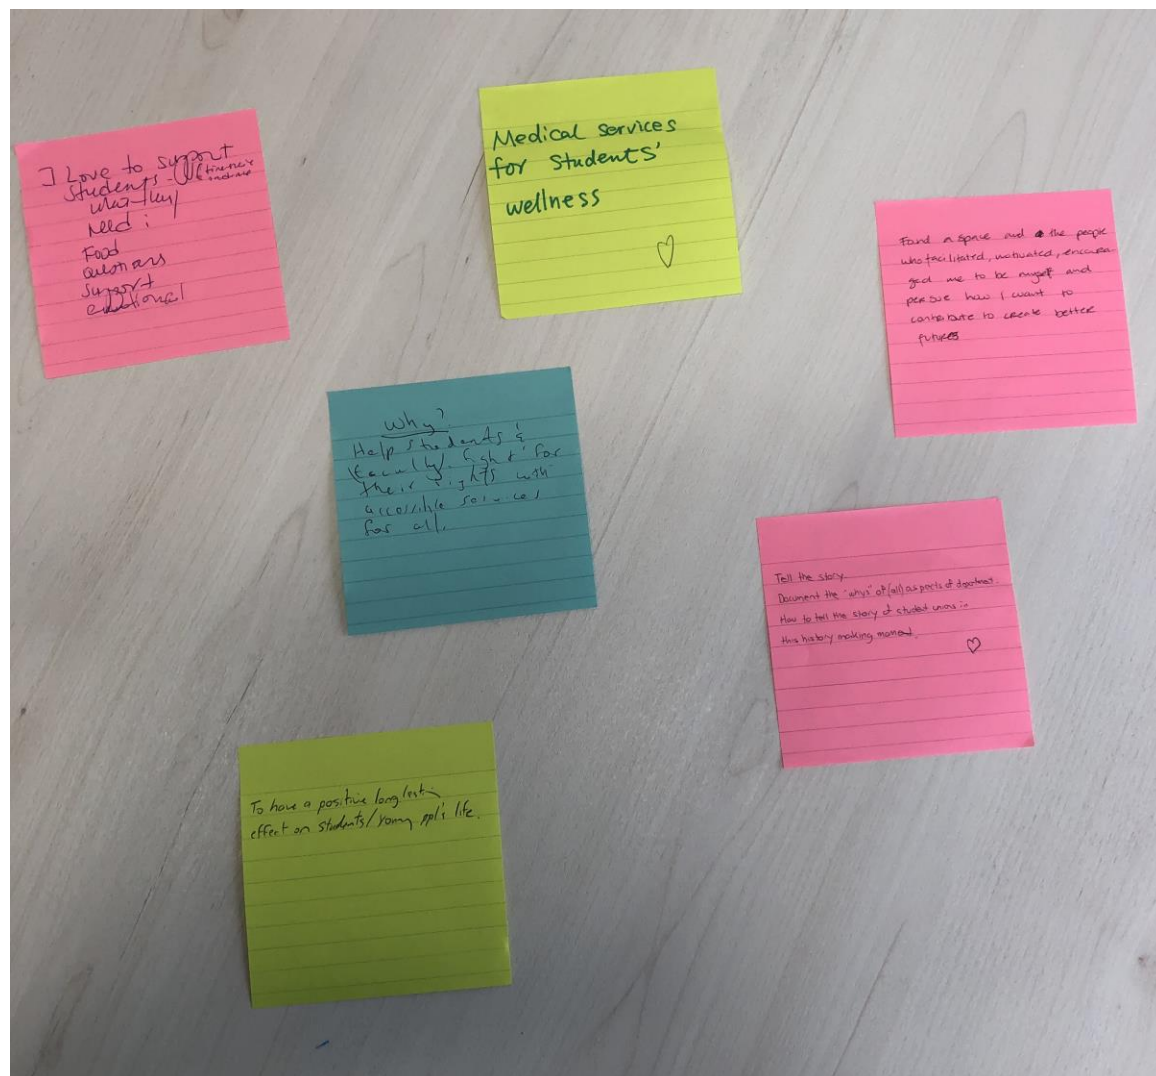 I Love to support
students -
what they
need :
Food
questions
support
emotional
Medical services
for students'
wellness
♡
Found a space and the people
who facilitated, motivated, encoura
ged me to be myself and
persue how I want to
contribute to create better
futures
Why?
Help students &
faculty fight for
their rights with
accessible services
for all.
Tell the story.
Document the "whys" of (all) aspects of department.
How to tell the story of student unions in
this history making moment.
♡
To have a positive long lasting
effect on students/young ppl's life.